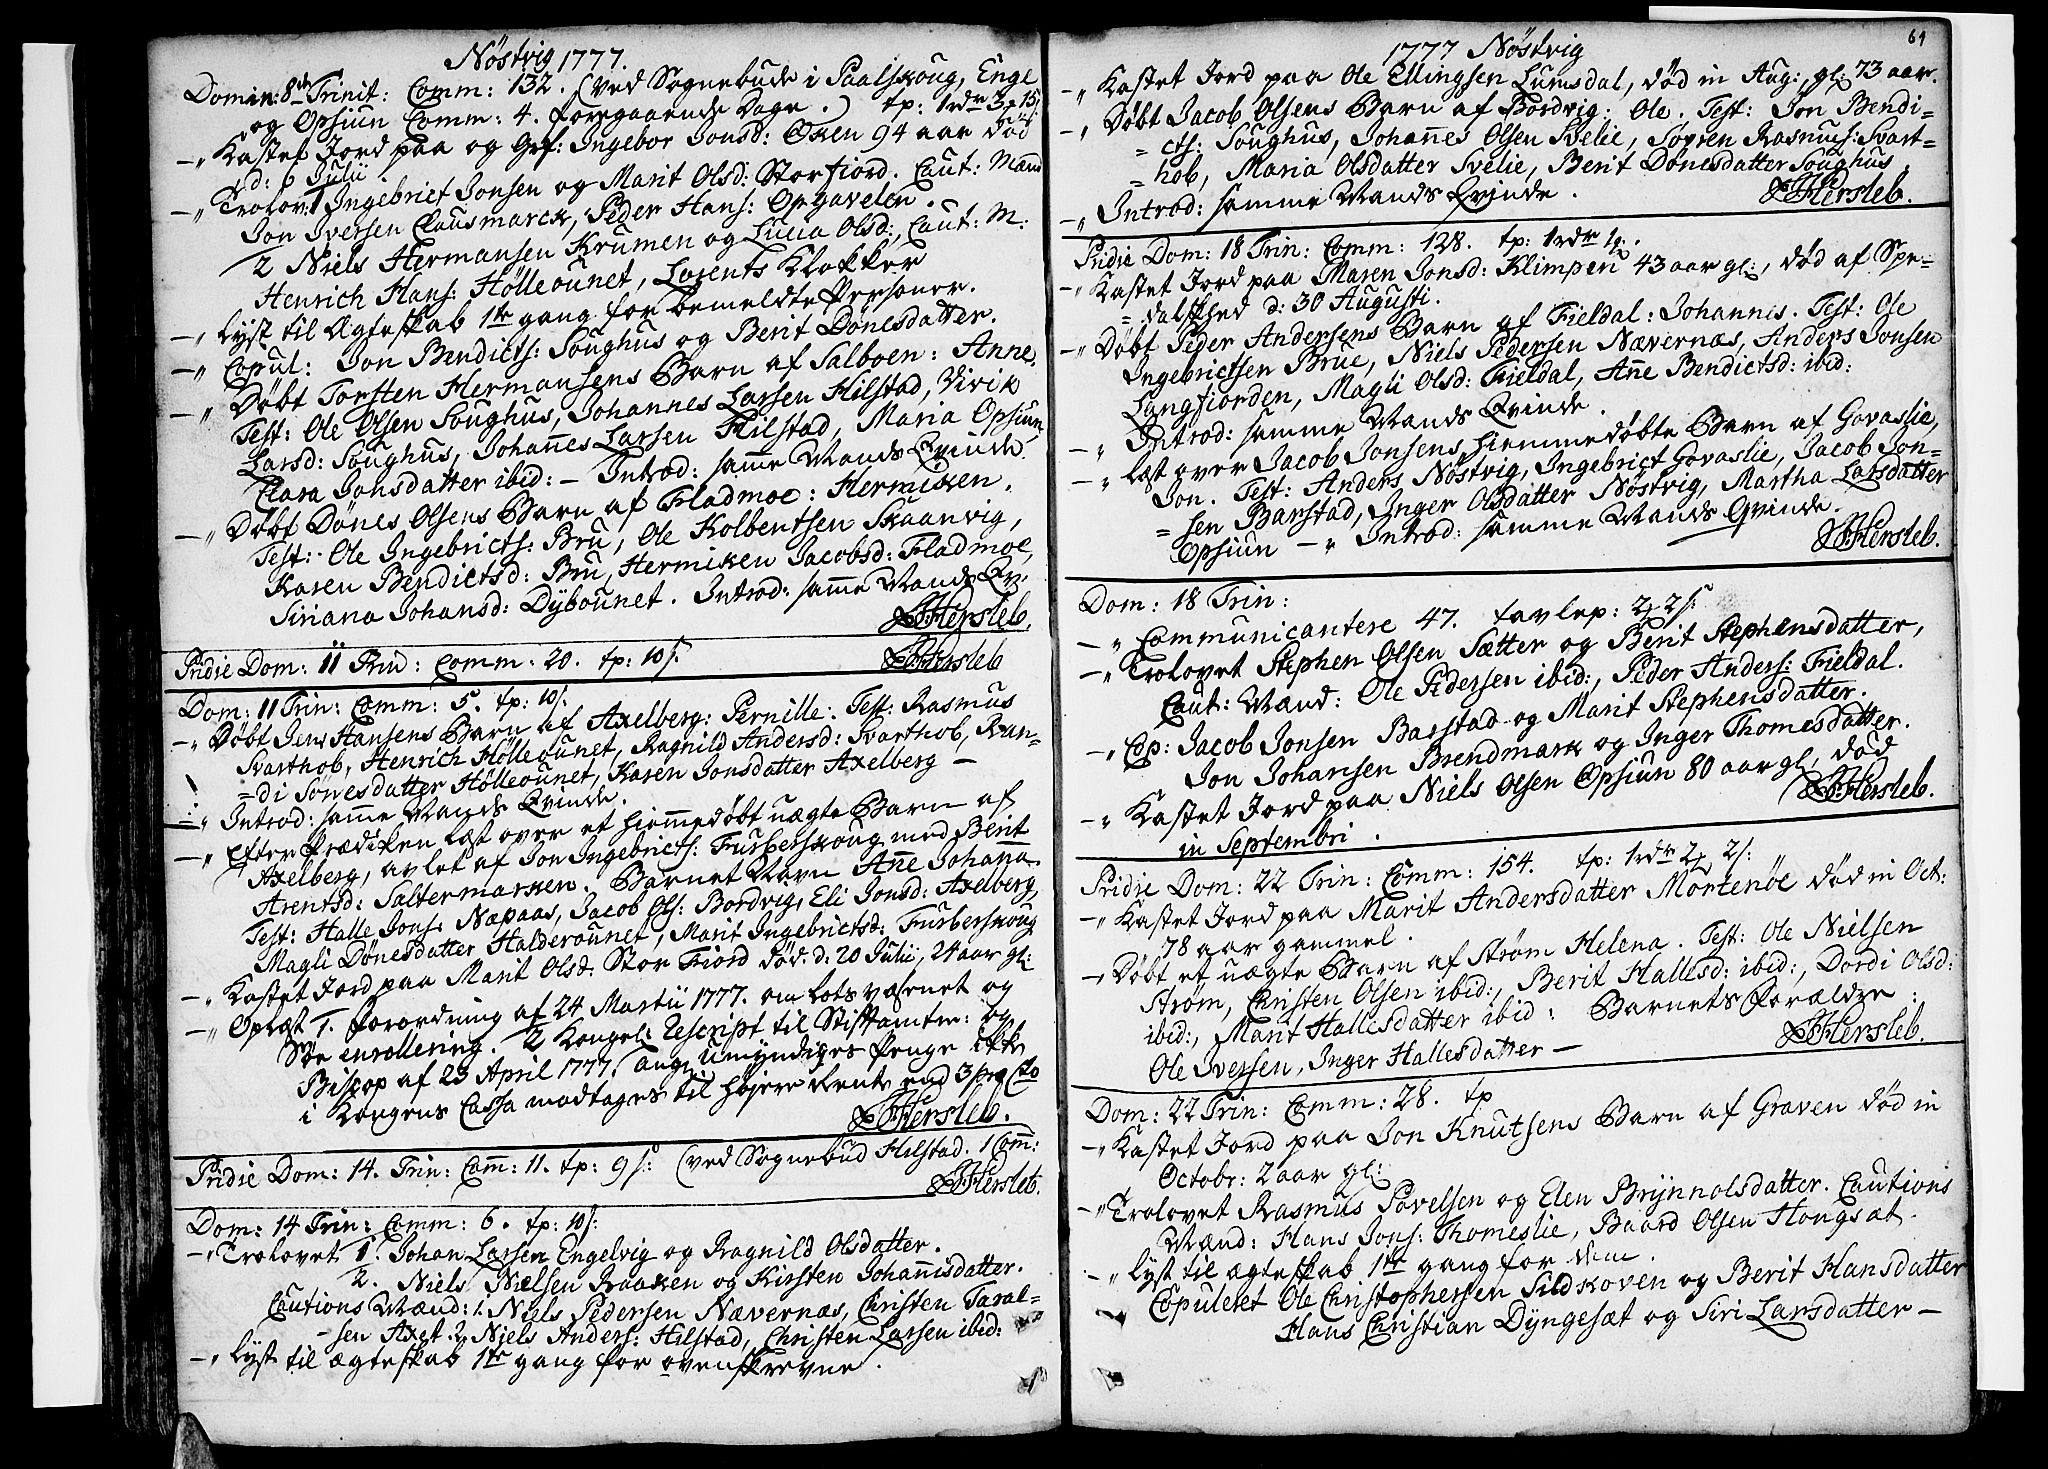 Nöstvig 1777.
Domin: 8de Trinit: Comm: 132. (Ved Sognebude i Paalskoug, Enge
og Opsiun Comm: 4. foregaaende Dage.) tp: 1rdr 3 15
-" Kastet Jord paa og Grf: Ingebor Jonsd: Oxen 94 aar død
d: 6 Julii
-" Trolov: 1 Ingebrict Jonsen og Marit Olsd: Storfiord. Caut: Mænd
Jon Iversen Clausmarck, Peder Hans: Opgavelen.
2 Niels Hermansen Krumen og Lucia Olsd:, Caut: M:
Henrich Hans: Hölleounet, Lorents Klokker
-" Lyst til Ægteskab 1te gang for bemeldte Personer.
-" Copul: Jon Bendicts: Soughus og Berit Dönesdatter.
-" Döbt Torsten Hermansens Barn af Salboen: Anne.
Test: Ole Olsen Soughus, Johannes Larsen Hilstad, Virik
Larsd: Soughus, Johannes Larsen Hilstad, Maria Opsiun,
Clara Jonsdatter ibid: - Introd: samme Mands Qvinde.
-" Döbt Dönes Olsens Barn af Fladmoe: Hermiken.
Test: Ole Ingebricts: Bru, Ole Kolbentsen Skaanvig,
Karen Bendictsd: Bru, Hermiken Jacobsd: Fladmoe,
Siriana Johansd: Dybounet. Introd: samme Mands Qv:
Hersleb.
Pridie Dom: 11 Trin: Comm: 20. tp: 10 s: Hersleb
Dom: 11 Trin: Comm: 5. tp: 10 s:
-" Döbt Jens Hansens Barn af Axelberg: Pernille. Test: Rasmus
Svarthob, Henrich Hölleounet, Ragnild Andersd: Svarthob, Ran=
=di Sönesdatter Hölleounet, Karen Jonsdatter Axelberg -
-" Introd: samme Mands Qvinde.
-" Efter Prædiken læst over et hiemmedöbt uægte Barn af
Axelberg, avlet af Jon Ingebricts: Furberskoug med Berit
Arentsd: Saltermarken. Barnet Navn Anne Johanna
Test: Halle Jons: Næpaas, Jacob Ols: Bordvig, Eli Jonsd: Axelberg,
Magli Dönesdatter Halderounet, Marit Ingebrictsd: Furberskoug
-" Kastet Jord paa Marit Olsd: Stor Fiord död d: 20 Julii, 24 aar gl:
-" Oplæst 1. Forordning af 24 Martii 1777. om Lots væsenet og
Söe enrollering. 2 Kongel: Rescript til Stiftamtm: og
Biscop af 23 April 1777. ang: umyndiges Penge ikke
i Kongens Cassa modtages til höjere Rente end 3 pro Cto
Hersleb.
Pridie Dom: 14. Trin: Comm: 11. tp: 9 s: (ved Sognebud Hilstad. 1 Comm:
Hersleb.
Dom: 14 Trin: Comm: 6. tp: 10 s:
-" Trolovet 1. Johan Larsen Engelvig og Ragnild Olsdatter.
2. Niels Nielsen Kraaken og Kirsten Johannisdatter.
Cautions Mænd: 1. Niels Pedersen Nævernæs, Christen Taral=
-sen Axet. 2 Niels Anders: Hilstad, Christen Larsen ibid:
-" Lyst til ægteskab 1te gang for ovenskrevne.
1777 Nöstvig
64
-" Kastet Jord paa Ole Ellingsen Lumsdal, död in Aug:, gl: 73 aar.
-" Döbt Jacob Olsens Barn af Bordvig: Ole. Test: Jon Bendi=
= cts: Soughus, Johannes Olsen Svelie, Sövren Rasmus: Svart=
= hob, Maria Olsdatter Svelie, Berit Dönesdatter Soughus.
-" Introd: samme Mands Qvinde. Hersleb.
Pridie Dom: 18 Trin: Comm: 128. tp: 1rdr
-" Kastet Jord paa Maren Jonsd: Klimpen 43 aar gl:, död af Spe=
= dalskhed d: 30 Augusti.
-" Döbt Peder Andersens Barn af Fieldal: Johannis. Test: Ole
Ingebrictsen Brue, Niels Pedersen Nævernæs, Anders Jonsen
Langfiorden, Magli Olsd: Fieldal, Anne Bendictsd: ibid:
-" Introd: samme Mands Qvinde.
-" Læst over Jacob Jonsens hiemmedöbte Barn af Govaslie,
Jon. Test: Anders Nöstvig, Ingebrict Govaslie, Jacob Jon=
= sen Barstad, Inger Olsdatter Nöstvig, Martha Larsdatter
Opsiun -" Introd: samme Mands Qvinde.
Hersleb.
Dom: 18 Trin:
-" Communicantere 47. tavlep: 2 2 s:
-" Trolovet Stephen Olsen Sætter og Berit Stephensdatter,
Caut: Mænd: Ole Pedersen ibid:, Peder Anders: Fieldal.
-" Cop: Jacob Jonsen Barstad og Marit Stephensdatter.
Jon Johansen Brendmark og Inger Thomesdatter.
-" Kastet Jord paa Niels Olsen Opsiun 80 aar gl, död
in Septembri. Hersleb.
Pridie Dom: 22 Trin: Comm: 154. tp: 1rdr 2 2 s:
-" Kastet Jord paa Marit Andersdatter Mortenöe död in Oct:
78 aar gammel.
-" Döbt et uægte Barn af Ström Helena. Test: Ole Nielsen
Ström, Christen Olsen ibid:, Berit Hallesd: ibid:, Dordi Olsd:
ibid:, Marit Hallesdatter ibid: Barnets Forældre:
Ole Iversen, Inger Hallesdatter - Hersleb.
Dom: 22 Trin: Comm: 28. tp
-" Kastet Jord paa Jon Knutsens Barn af Graven död in
Octobr: 2 aar gl:
-" Trolovet Rasmus Povelsen og Elen Brynnolsdatter. Cautions
Mænd: Hans Jons: Thomeslie, Baard Olsen Hongsæt.
-" Lyst til ægteskab 1te gang for dem.
Copuleret Ole Christophersen Sildhoven og Berit Hansdatter
Hans Christian Dyngesæt og Siri Larsdatter -